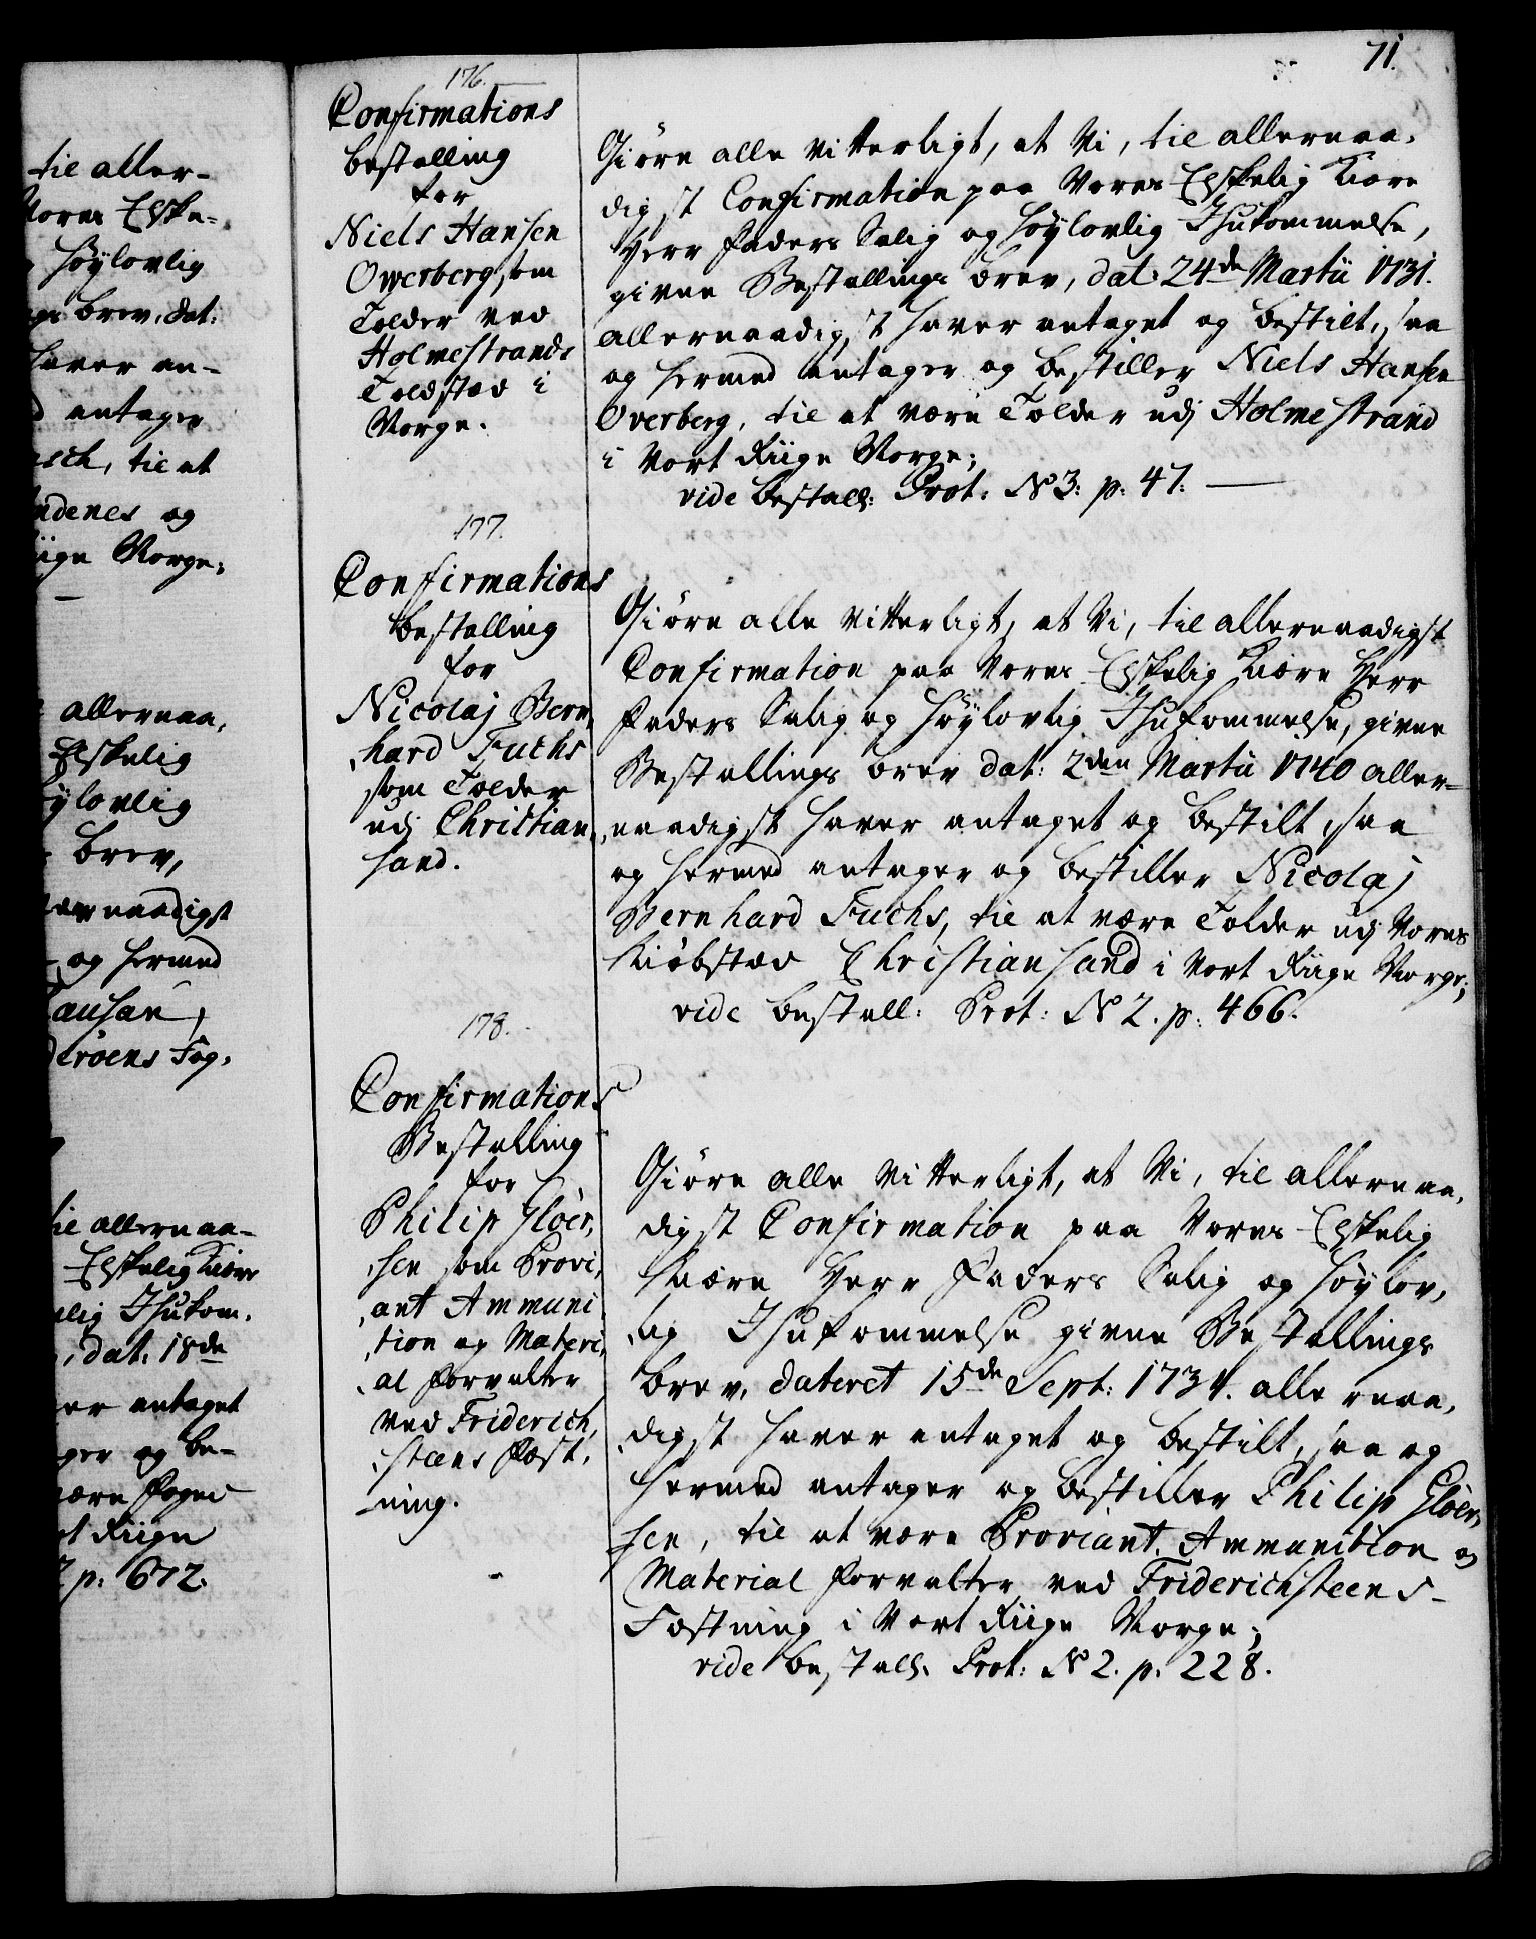 til aller-
Vores Elske-
høylovlig
brev, dat:
haver an-
antager
sch, til at
ndenes og
Riige Norge;
allernaa,
Elskelig
øylovlig
brev,
allernaadigst
og hermed
ausan,
erøens Fog,
til allernaa-
Elskelig Kiære
lig Ihukom,
, dat: 18de
er antaget
ger og be-
være foged
rt Riige
2 p: 672.
71.
176.
Confirmations
bestalling
for
Niels Hansen
Owerberg, som
Tolder ved
Holmestrands
Toldsted i
Norge.
Giøre alle vitterligt, at Vi, til allernaa,
digst Confirmation paa Vores Elskelig Kiære
Herr Faders Salig og høylovlig Ihukommelse,
givne Bestallings brev, dat: 24de Martii 1731.
allernaadigst haver antaget og bestilt, saa
og hermed antager og bestiller Niels Hansen
Overberg, til at være Tolder udj Holmestrand
i Vort Riige Norge;
vide bestall: Prot: No 3: p: 47.
177.
Confirmations
bestalling
for
Nicolaj Bern,
,hard Fuchs
som Tolder
udj Christian,
sand.
Giøre alle vitterligt, at Vi, til allernaadigst
Confirmation paa Vores Elskelig Kiære Herr
Faders Salig og høylovlig Ihukommelse, givne
Bestallings brev dat: 2den Martii 1740 aller-
,naadigst haver antaget og bestilt, saa
og hermed antager og bestiller Nicolaj
Bernhard Fuchs, til at være Tolder udj Vores
Kiøbsted Christiansand i Vort Riige Norge;
vide bestall: Prot: No 2. p: 466.
178.
Confirmations
Bestalling
for
Philip Gløer,
,sen som Provi,
,ant Ammuni
,tion og Materi,
,al forvalter
ved Friderich,
,steens fæst,
,ning.
Giøre alle vitterligt, at Vi, til allernaa,
digst Confirmation paa Vores Elskelig
Kiære Herr Faders Salig og høylov,
,lig Ihukommelse givne Bestallings
brev, dateret 15de Sept: 1734. allernaa,
,digst haver antaget og bestilt, saa og
hermed antager og bestiller Philip Gløer,
sen, til at være Proviant, Ammunition og
Material forvalter ved Friderichsteens-
Fæstning i Vort Riige Norge;
vide bestall. Prot: No 2. p. 228.